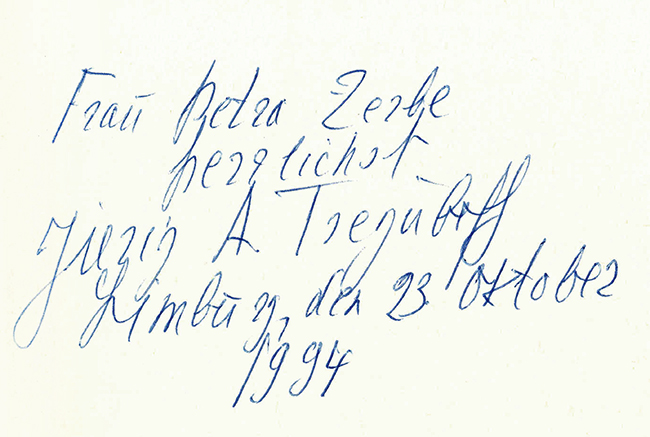 Frau Petra Zerbe
herzlichst
Jurij A Treguboff
Limburg, den 23 Oktober
1994